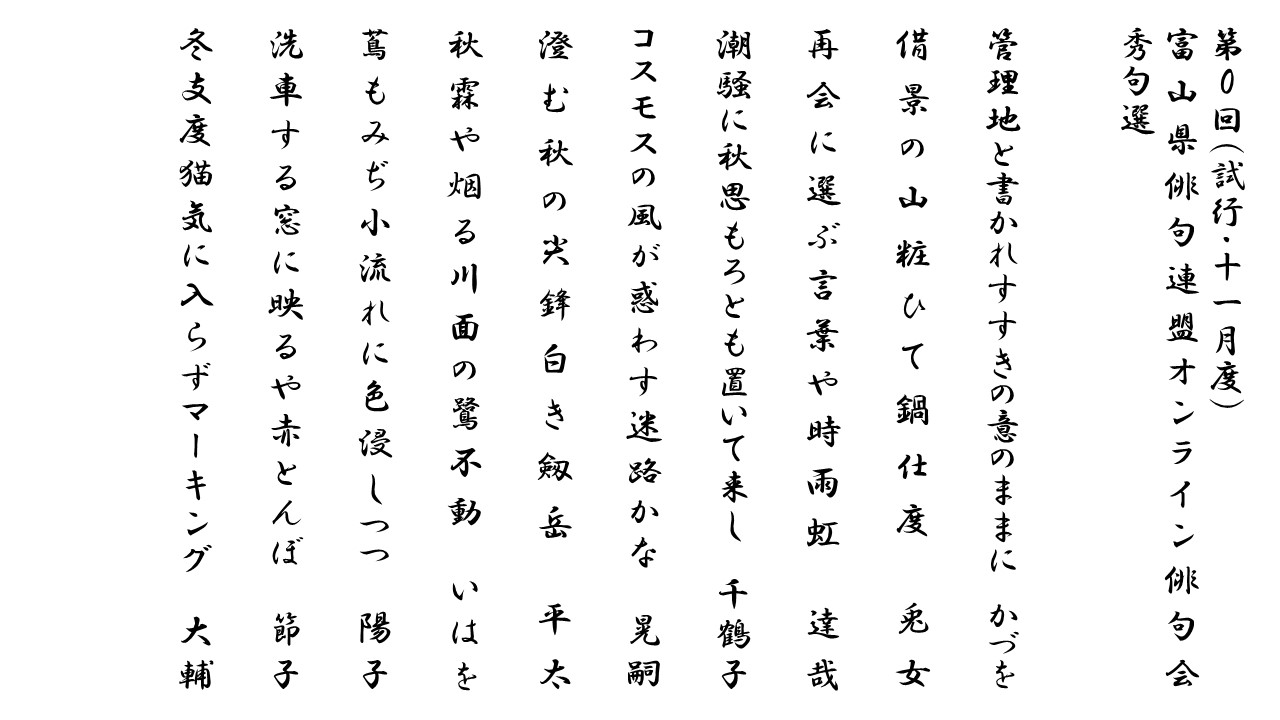 第０回(試行・十一月度)
富山県俳句連盟オンライン俳句会
秀句選
管理地と書かれすすきの意のままに　かづを
借景の山粧ひて鍋仕度　兎女
再会に選ぶ言葉や時雨虹　達哉
潮騒に秋思もろとも置いて来し　千鶴子
コスモスの風が惑わす迷路かな　晃嗣
澄む秋の尖鋒白き劔岳　平太
秋霖や烟る川面の鷺不動　いはを
蔦もみぢ小流れに色浸しつつ　陽子
洗車する窓に映るや赤とんぼ　節子
冬支度猫気に入らずマーキング　大輔